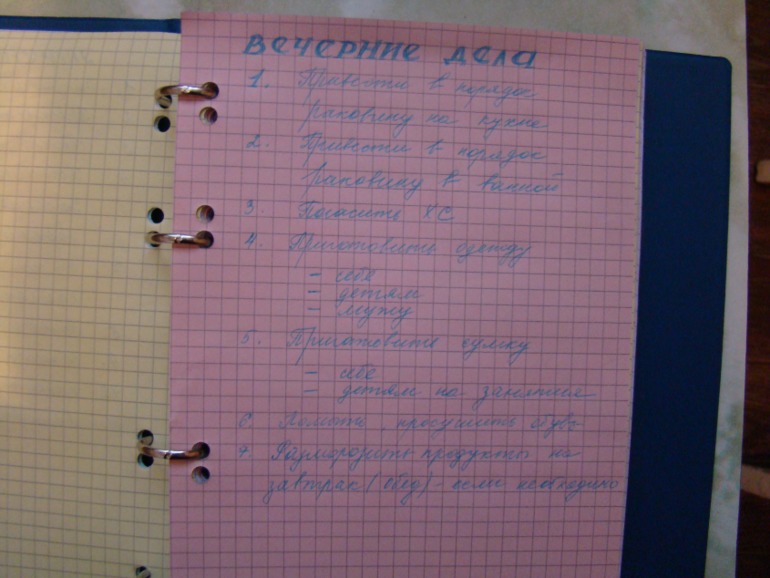 ВЕЧЕРНИЕ ДЕЛА
1. Привести в порядок
раковину на кухне
2. Привести в порядок
раковину в ванной
3. Погасить ХС
4. Приготовить одежду
- себе
- детям
- мужу
5. Приготовить сумку
- себе
- детям на занятия
6. Помыть, просушить обувь
7. Разморозить продукты на
завтрак (обед) - если необходимо